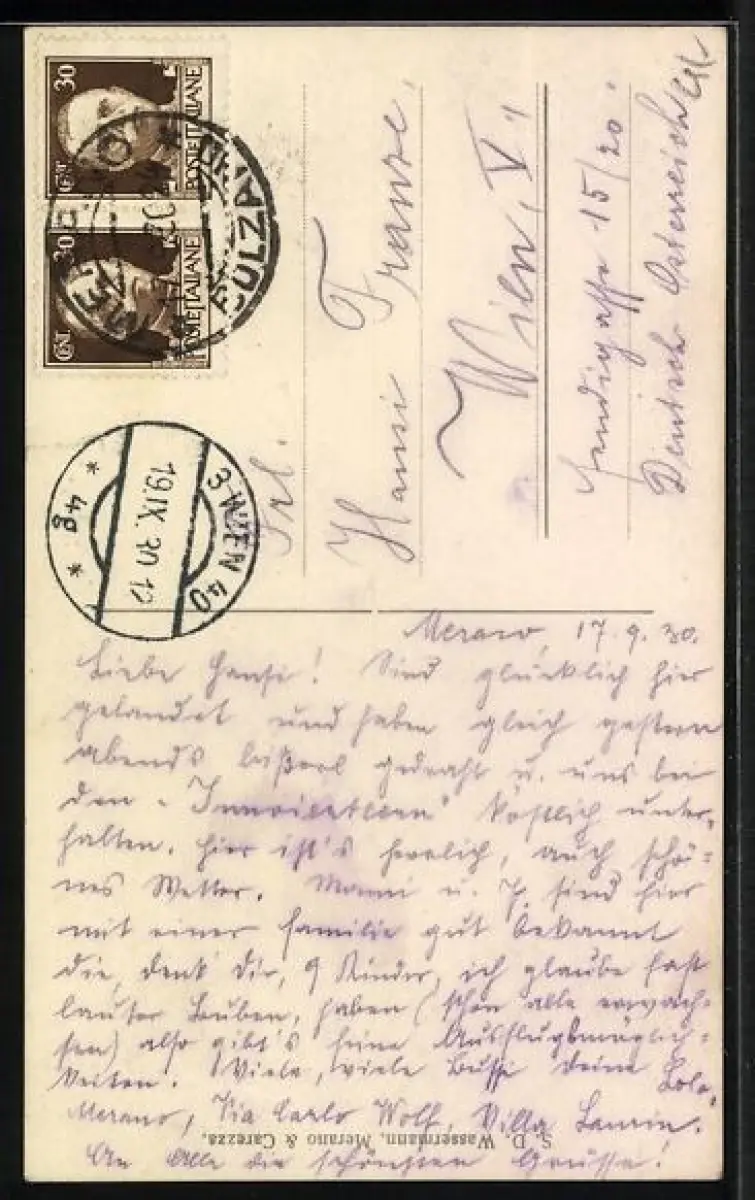 30
CENT
POSTE ITALIANE
30
CENT
POSTE ITALIANE
BOLZANO
3 WIEN 40
19.IX.30
* 4g *
Frl.
Hansi Franze,
Wien, V.,
15/20.
Deutsch Österreich
Merano, 17.9.30.
Liebe Hansi! Sind glücklich hier
gelandet und haben gleich gestern
abends bißerl gedraht u. uns bei
den köstlich unter-
halten. Hier ist's herrlich, auch schö-
nes Wetter. Mami u. P. sind hier
mit einer Familie gut bekannt
die, denk' dir, 9 Kinder, ich glaube fast
lauter Buben, haben (schon alle erwach-
sen) also gibt's feine Ausflugsmöglich-
keiten. Viele, viele Bussi deine Lola.
Merano, Via Carlo Wolf, Villa Laurin.
An Alle die schönsten Grüsse!
S. D. Wassermann, Merano & Carezza.